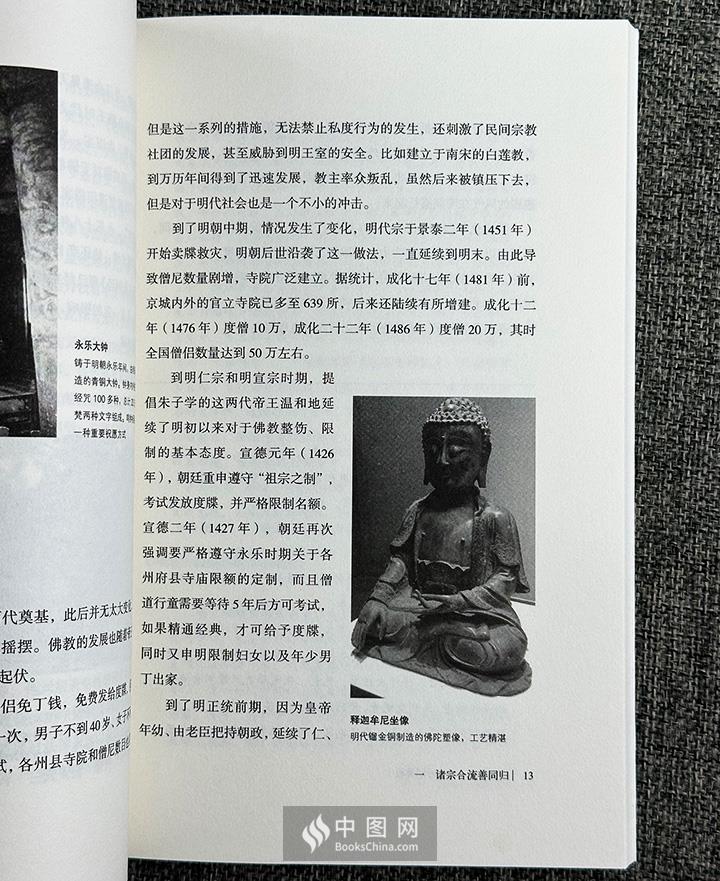 永乐大钟
铸于明朝永乐年间，
造的青铜大钟。钟身内
经咒 100 多种，总计
梵两种文字组成。
一种重要祝愿方式
代奠基，此后并无太大
摇摆。佛教的发展也随着
起伏。
侣免丁钱，免费发给度牒，
一次，男子不到 40 岁，女子不
式，各州县寺院和僧尼数目
但是这一系列的措施，无法禁止私度行为的发生，还刺激了民间宗教
社团的发展，甚至威胁到明王室的安全。比如建立于南宋的白莲教，
到万历年间得到了迅速发展，教主率众叛乱，虽然后来被镇压下去，
但是对于明代社会也是一个不小的冲击。
到了明朝中期，情况发生了变化，明代宗于景泰二年（1451 年）
开始卖牒救灾，明朝后世沿袭了这一做法，一直延续到明末。由此导
致僧尼数量剧增，寺院广泛建立。据统计，成化十七年（1481 年）前，
京城内外的官立寺院已多至 639 所，后来还陆续有所增建。成化十二
年（1476 年）度僧 10 万，成化二十二年（1486 年）度僧 20 万，其时
全国僧侣数量达到 50 万左右。
到明仁宗和明宣宗时期，提
倡朱子学的这两代帝王温和地延
续了明初以来对于佛教整饬、限
制的基本态度。宣德元年（1426
年），朝廷重申遵守“祖宗之制”，
考试发放度牒，并严格限制名额。
宣德二年（1427 年），朝廷再次
强调要严格遵守永乐时期关于各
州府县寺庙限额的定制，而且僧
道行童需要等待 5 年后方可考试，
如果精通经典，才可给予度牒，
同时又申明限制妇女以及年少男
丁出家。
到了明正统前期，因为皇帝
年幼、由老臣把持朝政，延续了仁、
释迦牟尼坐像
明代镏金铜制造的佛陀塑像，工艺精湛
一 诸宗合流善同归 | 13
中图网
BooksChina.com